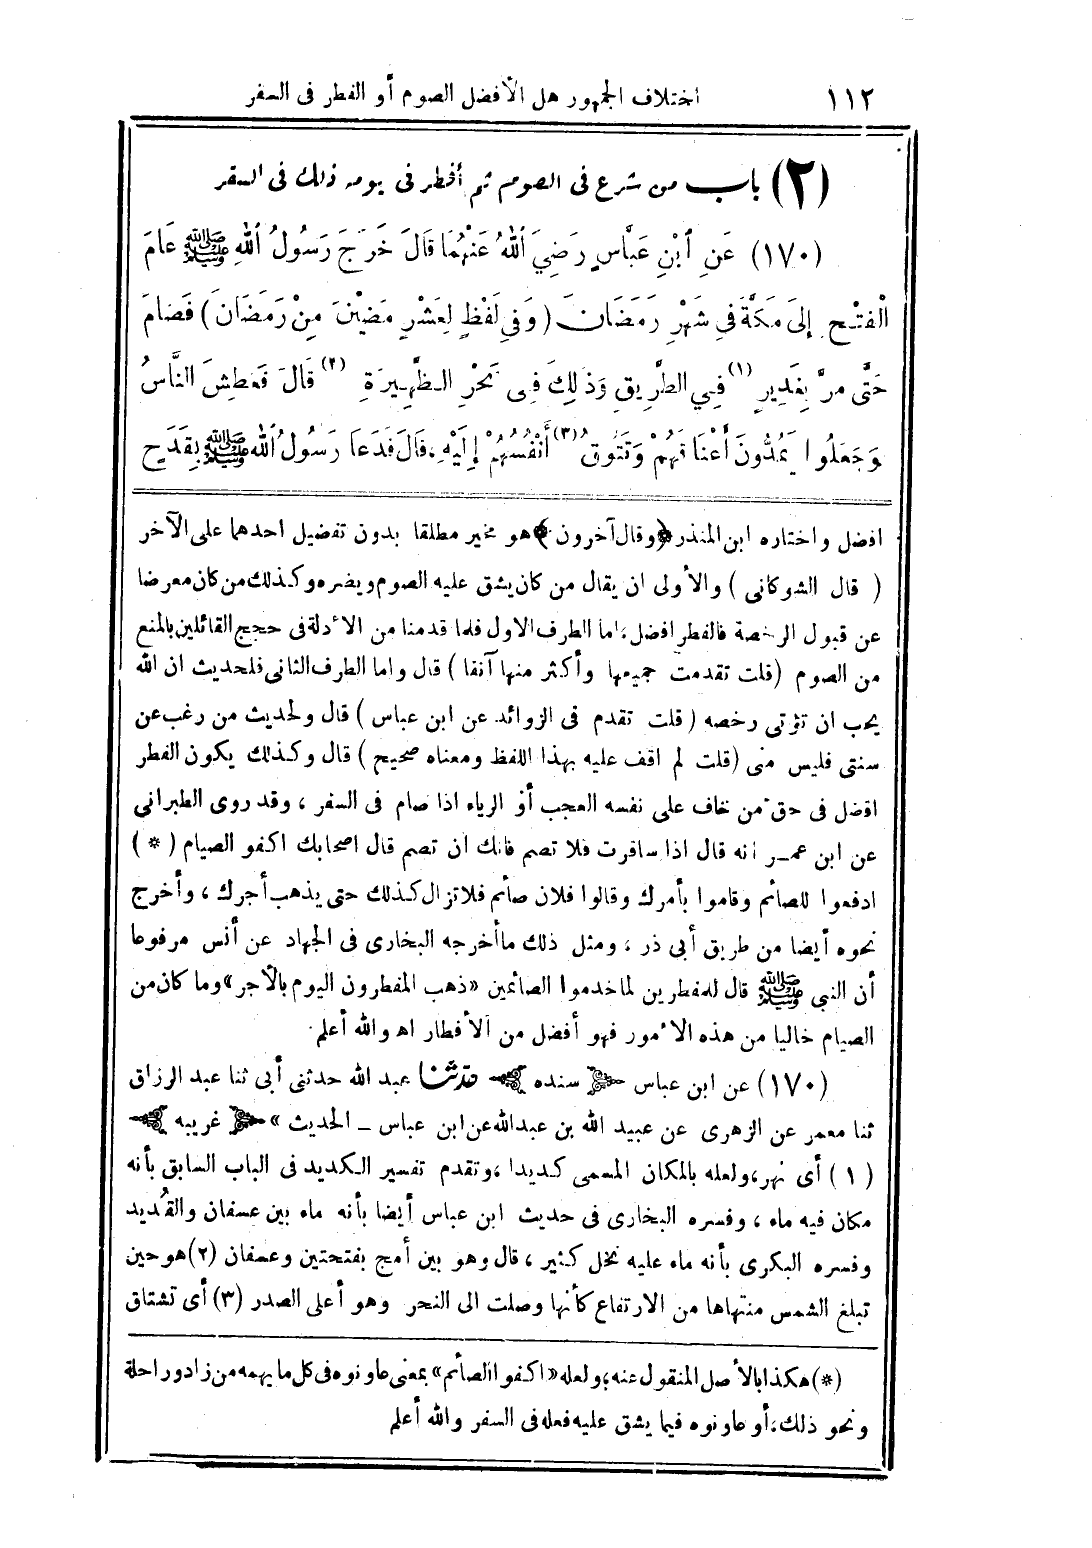 ١١٢ اختلاف الجمهور هل الأفضل الصوم أو الفطر فى السفر
(٢) باب من شرع فى الصوم ثم أفطر فى يومه ذلك فى السفر
(١٧٠) عَنِ ٱبْنِ عَبَّاسٍ رَضِيَ ٱللهُ عَنْهُمَا قَالَ خَرَجَ رَسُولُ ٱللهِ ﷺ عَامَ
الْفَتْحِ إِلَى مَكَّةَ فِي شَهْرِ رَمَضَانَ (وَفِي لَفْظٍ لِعَشْرٍ مَضَيْنَ مِنْ رَمَضَانَ) فَصَامَ
حَتَّى مَرَّ بِغَدِيرٍ (١) فِي الطَّرِيقِ وَذٰلِكَ فِى نَحْرِ الظَّهِيرَةِ (٢) قَالَ فَعَطِشَ النَّاسُ
وَجَعَلُوا يَمُدُّونَ أَعْنَاقَهُمْ وَتَتُوقُ (٣) أَنْفُسُهُمْ إِلَيْهِ، قَالَ فَدَعَا رَسُولُ اللهِ ﷺ بِقَدَحٍ
افضل واختاره ابن المنذر ﴿وقال آخرون﴾ هو مخير مطلقا بدون تفضيل احدهما على الآخر
( قال الشوكانى ) والأولى ان يقال من كان يشق عليه الصوم ويضره وكذلك من كان معرضا
عن قبول الرخصة فالفطر افضل، اما الطرف الاول فلما قدمنا من الأدلة فى حجج القائلين بالمنع
من الصوم (قلت تقدمت جميعها وأكثر منها آنفا ) قال واما الطرف الثانى فلحديث ان الله
يحب ان تؤتى رخصه ( قلت تقدم فى الزوائد عن ابن عباس ) قال ولحديث من رغب عن
سنتى فليس منى (قلت لم اقف عليه بهذا اللفظ ومعناه صحيح ) قال وكذلك يكون الفطر
افضل فى حق من خاف على نفسه العجب أو الرياء اذا صام فى السفر ، وقد روى الطبرانى
عن ابن عمر انه قال اذا سافرت فلا تصم فانك ان تصم قال اصحابك اكفو الصيام ( * )
ادفعوا للصائم وقاموا بأمرك وقالوا فلان صائم فلا تزال كذلك حتى يذهب أجرك ، وأخرج
نحوه أيضا من طريق أبى ذر ، ومثل ذلك ما أخرجه البخارى فى الجهاد عن أنس مرفوعا
أن النبى ﷺ قال للمفطرين لما خدموا الصائمين «ذهب المفطرون اليوم بالأجر» وما كان من
الصيام خاليا من هذه الأمور فهو أفضل من الأفطار اه والله أعلم
(١٧٠) عن ابن عباس سنده حدثنا عبد الله حدثنى أبى ثنا عبد الرزاق
ثنا معمر عن الزهرى عن عبيد الله بن عبدالله عن ابن عباس ـ الحديث » غريبه
(١) أى نهر، ولعله بالمكان المسمى كديدا ، وتقدم تفسير الكديد فى الباب السابق بأنه
مكان فيه ماء ، وفسره البخارى فى حديث ابن عباس أيضا بأنه ماء بين عسفان والقُديد
وفسره البكرى بأنه ماء عليه نخل كثير ، قال وهو بين أمج بفتحتين وعسفان (٢) هو حين
تبلغ الشمس منتهاها من الارتفاع كأنها وصلت الى النحر وهو أعلى الصدر (٣) أى تشتاق
(*) هكذا بالأصل المنقول عنه؛ ولعله «اكفوا الصائم» بمعنى عاونوه فى كل ما يهمه من زاد وراحلة
ونحو ذلك، أو عاونوه فيما يشق عليه فعله فى السفر والله أعلم